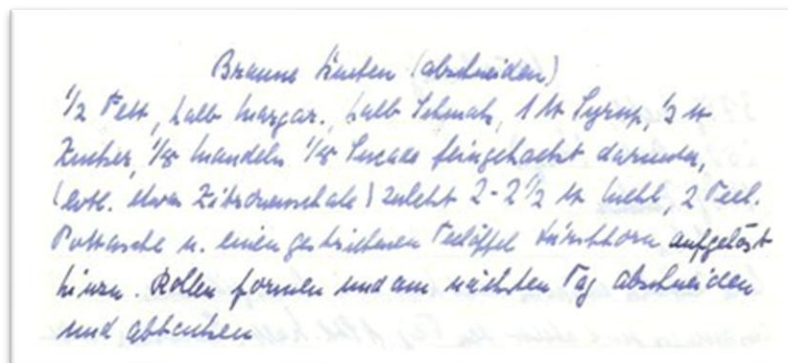 Braune Kuchen (abschneiden)
1/2 Fett, halb Margar., halb Schmalz, 1 tt Syrup, 1/2 tt
Zucker, 1/8 Mandeln 1/8 Sucade feingehackt darunter,
(evtl. etwas Zitronenschale) zuletzt 2-2 1/2 tt Mehl, 2 Teel.
Pottasche u. einen gestrichenen Teelöffel Hirschhorn aufgelöst
hinzu. Rollen formen und am nächsten Tag abschneiden
und abbacken